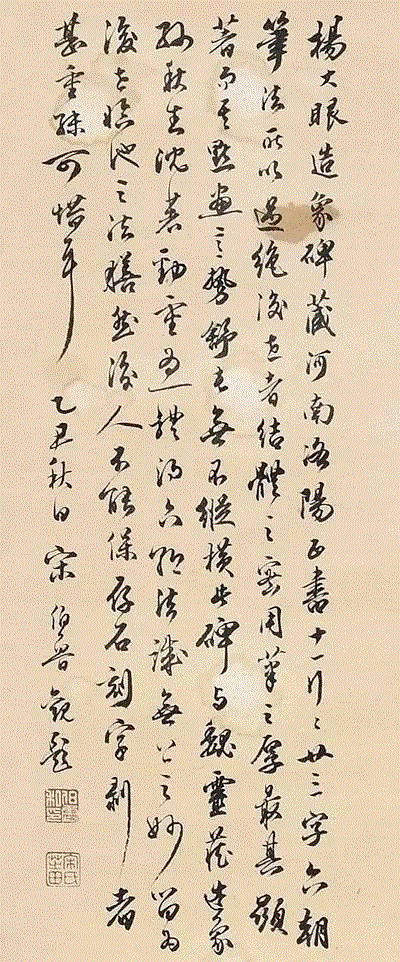 楊大眼造象碑藏河南洛陽正書十一行々廿三字六朝
筆法所以過絕後世者結體之密用筆之厚最其顯
著而其點畫之勢舒毫無不縱橫此碑與魏靈藏造象
孫秋生沈著勁重為一體得六朝法無上之妙留為
後世臨池之法然後人不能保存石刻字剝者
甚重殊可惜耳 乙丑秋日宋伯魯觀題
宋氏芝田